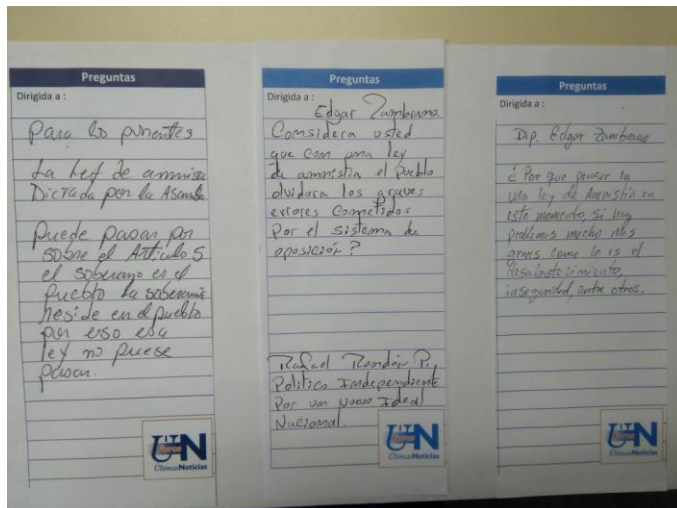 Preguntas
Dirigida a :
Para lo ponentes
La Ley de amnistia
Dictada por la Asamble
Puede pasar por
sobre el Articulo 5
el soberano es el
Pueblo La soberania
Reside en el pueblo
por erso esa
ley no puese
pasar.
Últimas Noticias
Preguntas
Dirigida a :
Edgar Zambrano.
Considera usted
que con una ley
de amnistia el Pueblo
olvidara los graves
errores Cometidos
Por el sistema de
oposición?
Rafael Rondón P.
Politico Independiente
Por un Nuevo Ideal
Nacional.
Últimas Noticias
Preguntas
Dirigida a :
Dip. Edgar Zambrano
¿Por que pensar en
una ley de Amnistía en
este momento, si hay
problemas mucho más
graves como lo es el
desabastecimiento,
inseguridad, entre otros.
Últimas Noticias